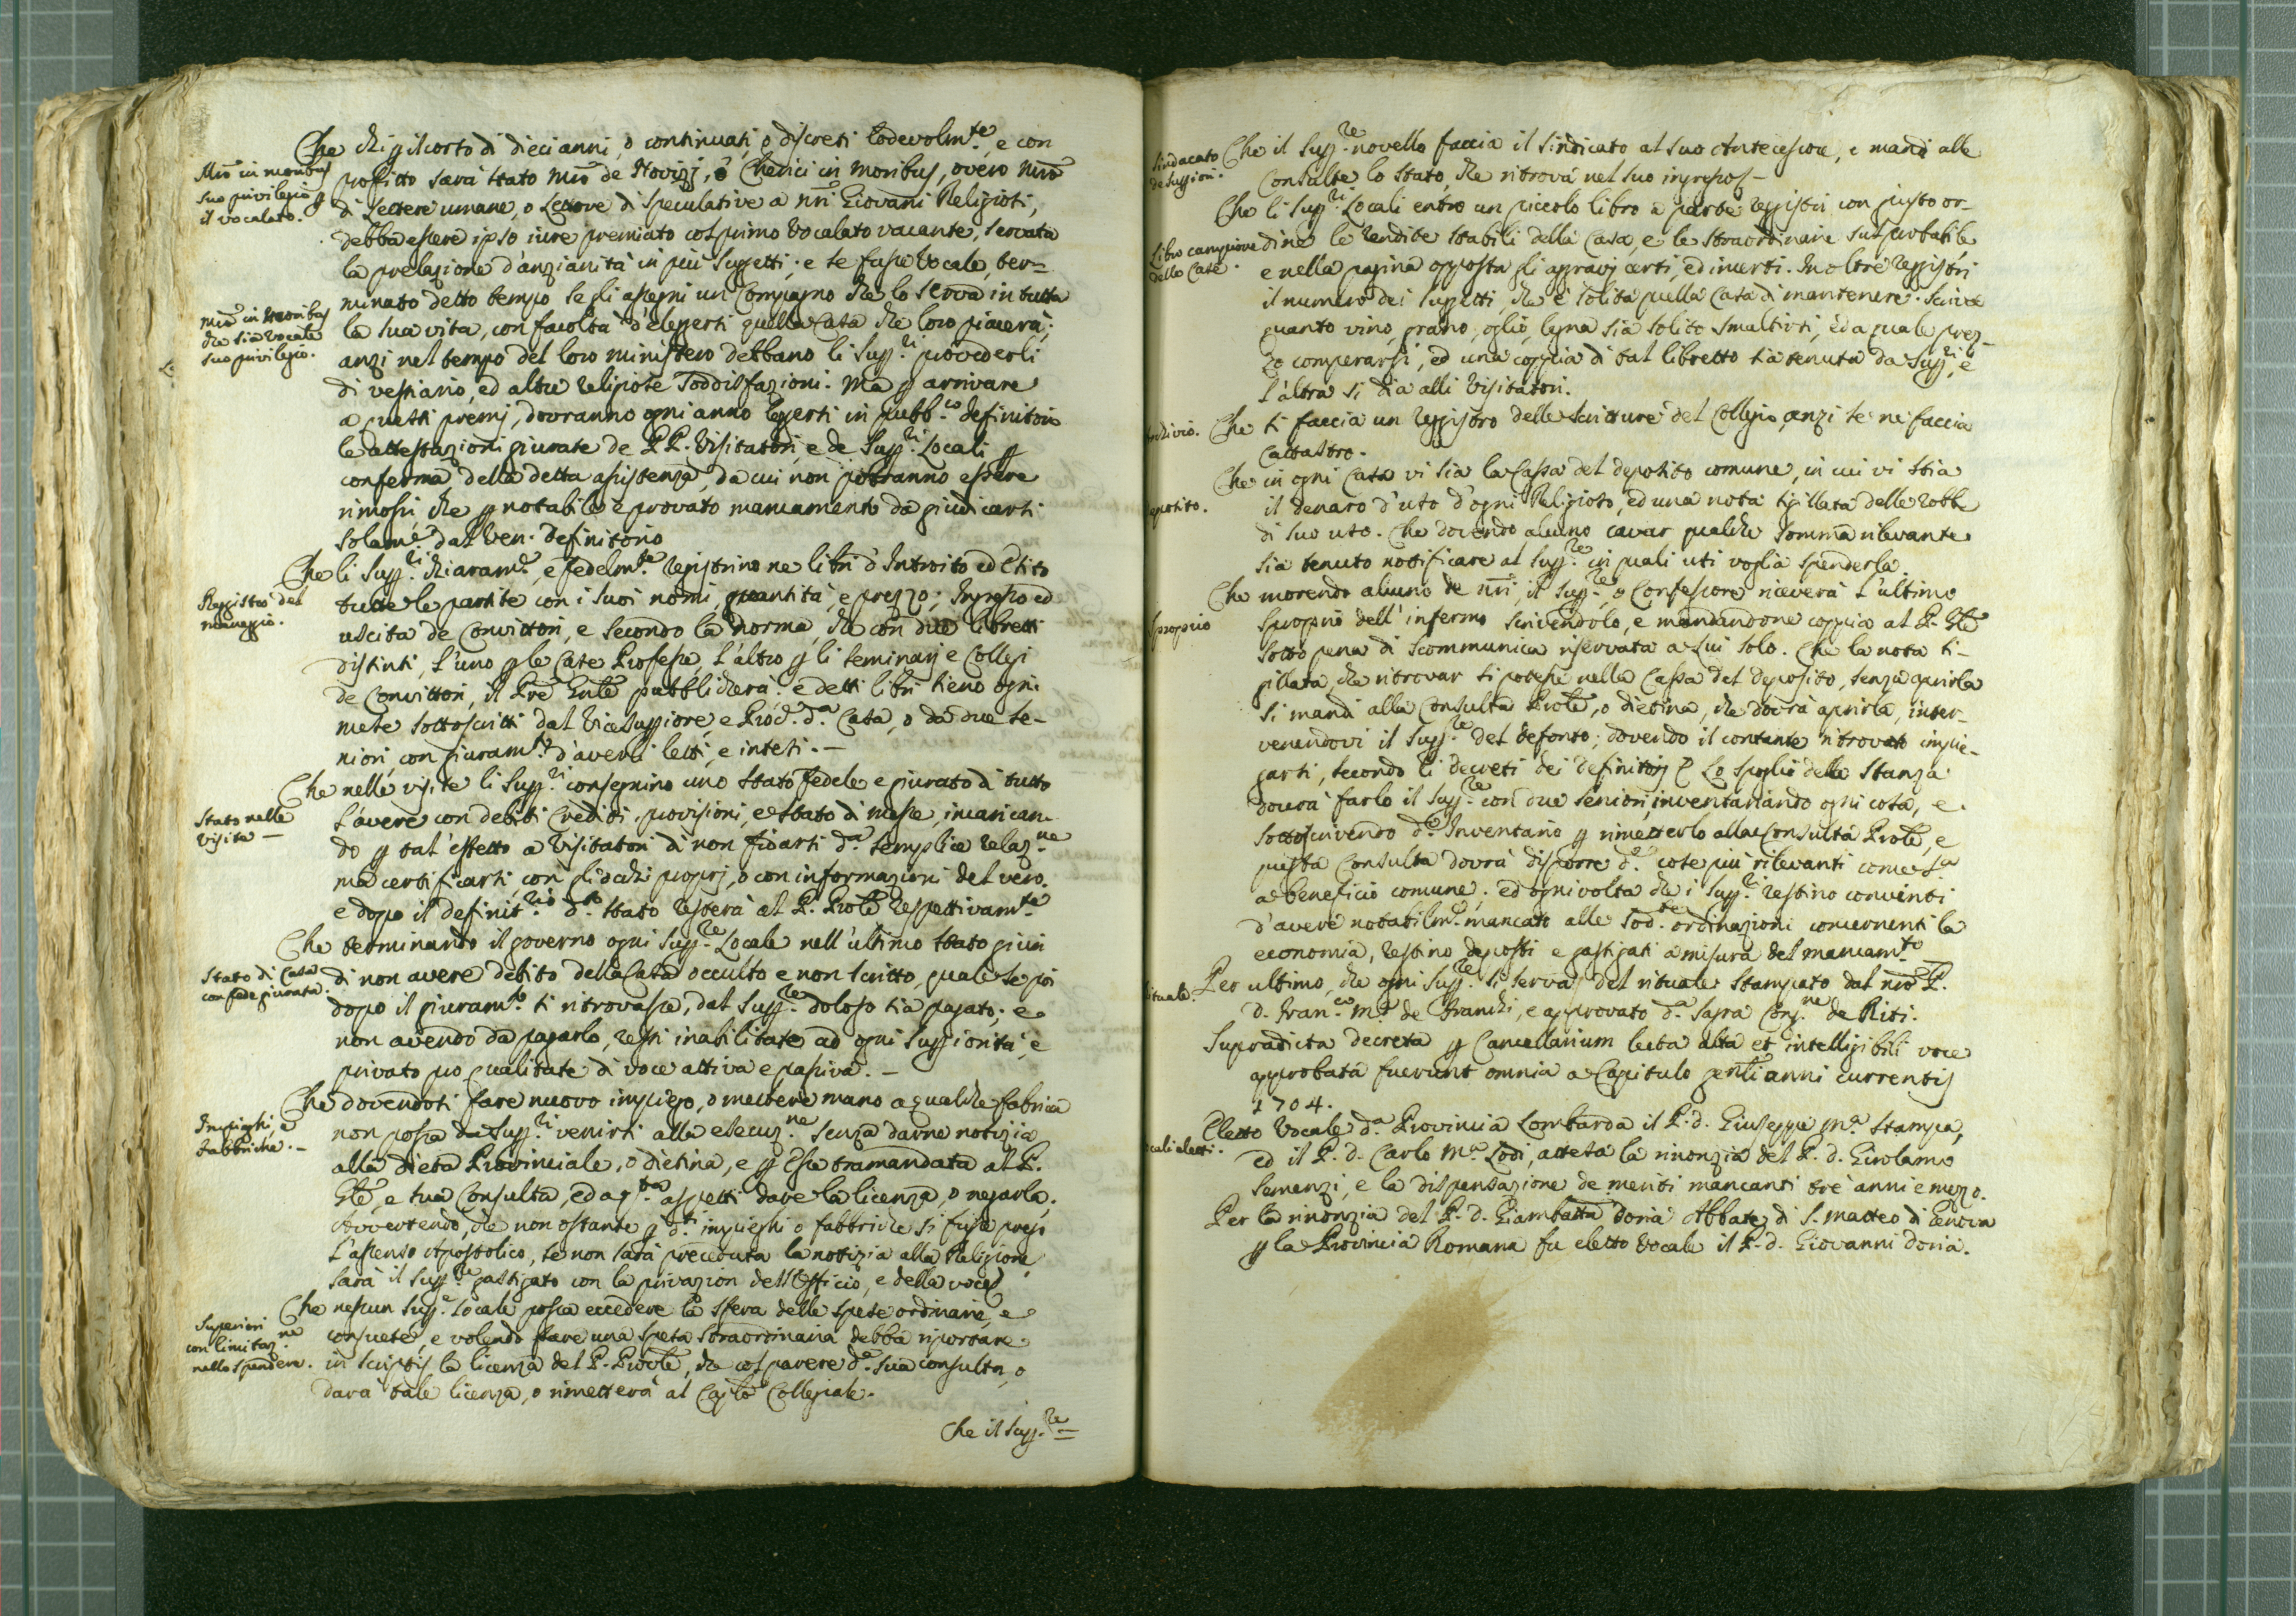 Che chi p il corso di dieci anni, o continuati, o discreti lodevolm.te, e con
Mrõ in moribus
suo privilegio p
il vocalato.
profitto sarà stato Mrõ de Novizj, ò Cherici in moribus, overo Mrõ
di Lettere umane, o Lettore di speculative a nrĩ Giovani Religiosi,
debba essere ipso iure premiato col primo Vocalato vacante, servata
la prelazione d'anzianità in più Suggetti; e se fusse Vocale, ter=
minato detto tempo se gli assegni un Compagno che lo serva in tutta
Mrõ in Moribus
che sia Vocale
suo privilegio.
la sua vita, con facoltà d'eleggersi quella Casa che loro piacerà;
anzi nel tempo del loro ministero debbano li Supp.ri provederli
di vestiario, ed altre religiose soddisfazioni. Ma p arrivare
a questi premj, dovranno ogni anno leggersi in pubb.co definitorio
le attestazioni giurate de PP. Visitatori, e de Supp.ri Locali p
conferma della detta assistenza, da cui non potranno essere
rimossi, che p notabile e provato mancamento da giudicarsi
solamẽ dal Ven. Definitorio
Che li Supp.ri chiaram.e, e fedelm.te registrino ne libri d'Introito ed Esito
Registro del
maneggio.
tutte le partite con i suoi nomi, quantità e prezzo; Ingresso ed
uscita de Convittori, e secondo la norma, che con due libretti
distinti, l'uno p le Case Professe, l'altro p li Seminarj e Collegi
de Convittori, il Prẽ Gnlẽ pubblicherà. e detti libri sieno ogni
mese sottoscritti dal Vicesuppiore, e Proc. d.a Casa, o da due se-
niori, con giuram.to d'averli letti, e intesi. —
Che nelle visite li Supp.ri consegnino uno stato fedele e giurato di tutto
Stato nelle
Visite —
l'avere con debiti Crediti, provisioni, e stato di messe, incarican-
do p tal' effetto a Visitatori di non fidarsi d.a semplice relaz.ne
ma certificarsi, con gl'occhi proprj, o con informazioni del vero.
e dopo il definit.rio d.o stato resterà al P. Prolẽ respettivam.te
Che terminando il governo ogni Supp.re Locale nell'ultimo stato giuri
Stato di Casa
con fede giurata.
di non avere debito della Casa occulto e non scritto, quale se poi
dopo il giuram.to si ritrovasse, dal Supp.re doloso sia pagato; e
non avendo da pagarlo, resti inabilitato ad ogni Suppiorità, e
privato pro qualitate di voce attiva e passiva. —
Che dovendosi fare nuovo impiego, o mettere mano a qualche fabrica
Impieghi, e
fabbriche. —
non possa da Supp.ri venirsi alla esecuz.ne senza darne notizia
alla Dieta Provinciale, o dietina, e p essa tramandata al P.
Glẽ, e sua Consulta, ed a q.ta aspetti dare la licenza, o negarla.
Avvertendo, che non ostante p d.ti impieghi o fabbriche si fusse preso
l'assenso Apostolico, se non sarà preceduta la notizia alla Religione,
sarà il Supp.re gastigato con la privazion dell'Officio, e della voce.
Che nessun Supp.e Locale possa eccedere la sfera delle spese ordinarie, e
Superiori
con limitaz.ne
nello spendere.
consuete, e volendo fare una spesa straordinaria debba riportare
in scriptis la licenza del P. Provlẽ, che col parere d.a sua consulta, o
darà tale licenza, o rimetterà al Caplõ Collegiale.
Che il Supp.re =
Sindacato
de Suppiori.
Che il Supp.re novello faccia il sindicato al suo Antecessore, e mandi alle
Consulte lo stato, che ritrova nel suo ingresso —
Che li Supp.ri Locali entro un piccolo libro a parte registri con giusto or-
Libro campione
delle Case.
dine le rendite stabili della Casa, e le straordinarie sue probabili,
e nella pagina opposta gli aggravj certi, ed incerti. Inoltre registri
il numero dei suggetti, che è solita quella Casa di mantenere. Scriva
quanto vino, grano, oglio, legna sia solito smaltirsi, ed a quale prez-
zo comperarsi, ed una coppia di tal libretto sia tenuta da Supp.ri e
l'altra si dia alli Visitatori.
rchivio.
Che si faccia un registro delle scritture del Collegio, anzi se ne faccia
Cattastro.
Che in ogni Casa vi sia la Cassa del deposito comune, in cui vi stia
eposito.
il denaro d'uso d'ogni Religioso, ed una nota sigillata delle robbe
di suo uso. Che dovendo alcuno cavar qualche somma rilevante
sia tenuto notificare al Supp.re in quali usi voglia spenderla.
Che morendo alcuno de nrĩ, il Supp.re, o Confessore riceverà l'ultimo
sproprio
sproprio dell'infermo scrivendolo, e mandandone coppia al P. Glẽ
sotto pena di scommunica riservata a Lui solo. Che la nota si-
gillata, che ritrovar si potesse nella Cassa del deposito, senza aprirla
si mandi alla Consulta Prolẽ, o dietina, che dovrà aprirla, inter-
venendovi il Supp.re del defonto; dovendo il contante ritrovato impie-
garsi, secondo li decreti dei definitorj. Lo spoglio della stanza
dovrà farlo il Supp.re con due seniori, inventariando ogni cosa, e
sottoscrivendo d.o Inventario p rimetterlo alla Consulta Prolẽ, e
questa Consulta dovrà disporre d.e cose più rilevanti come s.a
a beneficio comune. ed ogni volta che i Supp.ri restino convinti
d'avere notabilm.e mancato alle sod.te ordinazioni concernenti la
economia, restino deposti e gastigati a misura del mancam.to
ituale.
Per ultimo, che ogni Supp.re si serva del rituale stampato dal nrõ P.
D. Fran.co M.a de Franchi, e approvato d.a Sagra Cong.ne de Riti.
Supradicta decreta p Cancellarium lecta alta et intelligibili voce
approbata fuerunt omnia a Capitulo gentli anni currentis
1704.
ocali eletti.
Eletto Vocale d.a Provincia Lombarda il P. D. Giuseppe M.a Stampa,
ed il P. D. Carlo M.a Lodi, attesa la rinonzia del P. D. Girolamo
Semenzi, e la dispensazione de meriti mancanti tre anni e mezo.
Per la rinonzia del P. D. Giambatta Doria Abbate di S. Matteo di Genova
p la Provincia Romana fu eletto Vocale il P. D. Giovanni Doria.